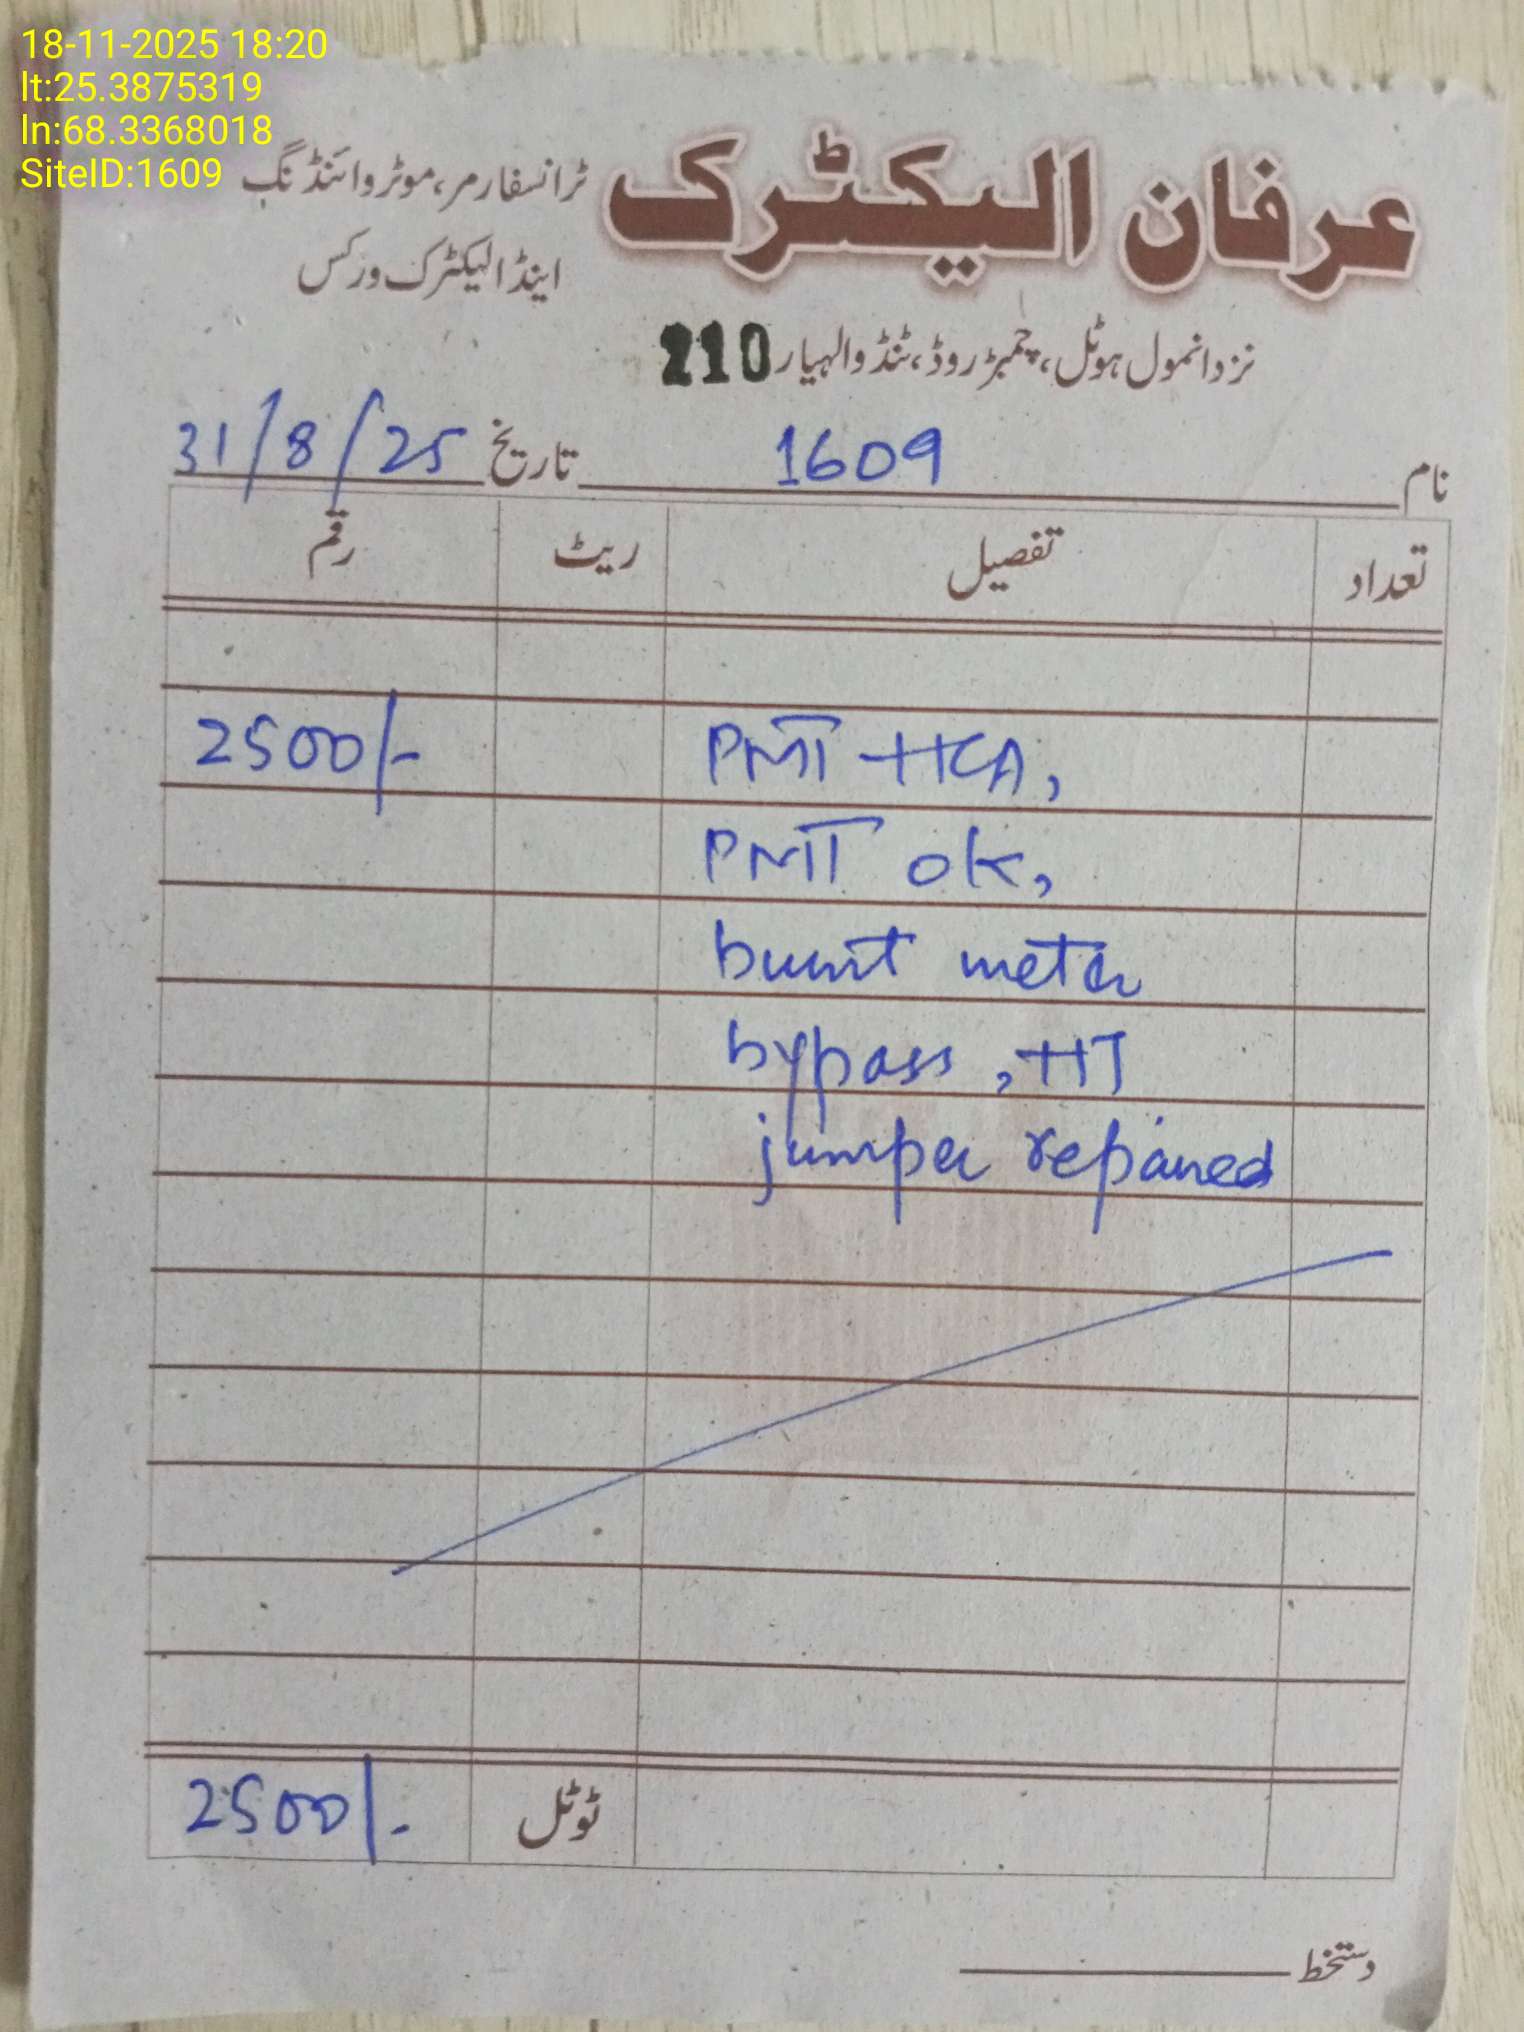 18-11-2025 18:20
lt:25.3875319
ln:68.3368018
SiteID:1609
عرفان الیکٹرک
ٹرانسفارمر، موٹر وائنڈنگ
اینڈ الیکٹرک ورکس
نزد انمول ہوٹل، چمبڑ روڈ، ٹنڈوالہیار 210
نام 1609 تاریخ 31/8/25
تعداد تفصیل ریٹ رقم
PMT HCA, 2500/-
PMT ok,
burnt meter
bypass, HT
jumper repaired
ٹوٹل 2500/-
دستخط